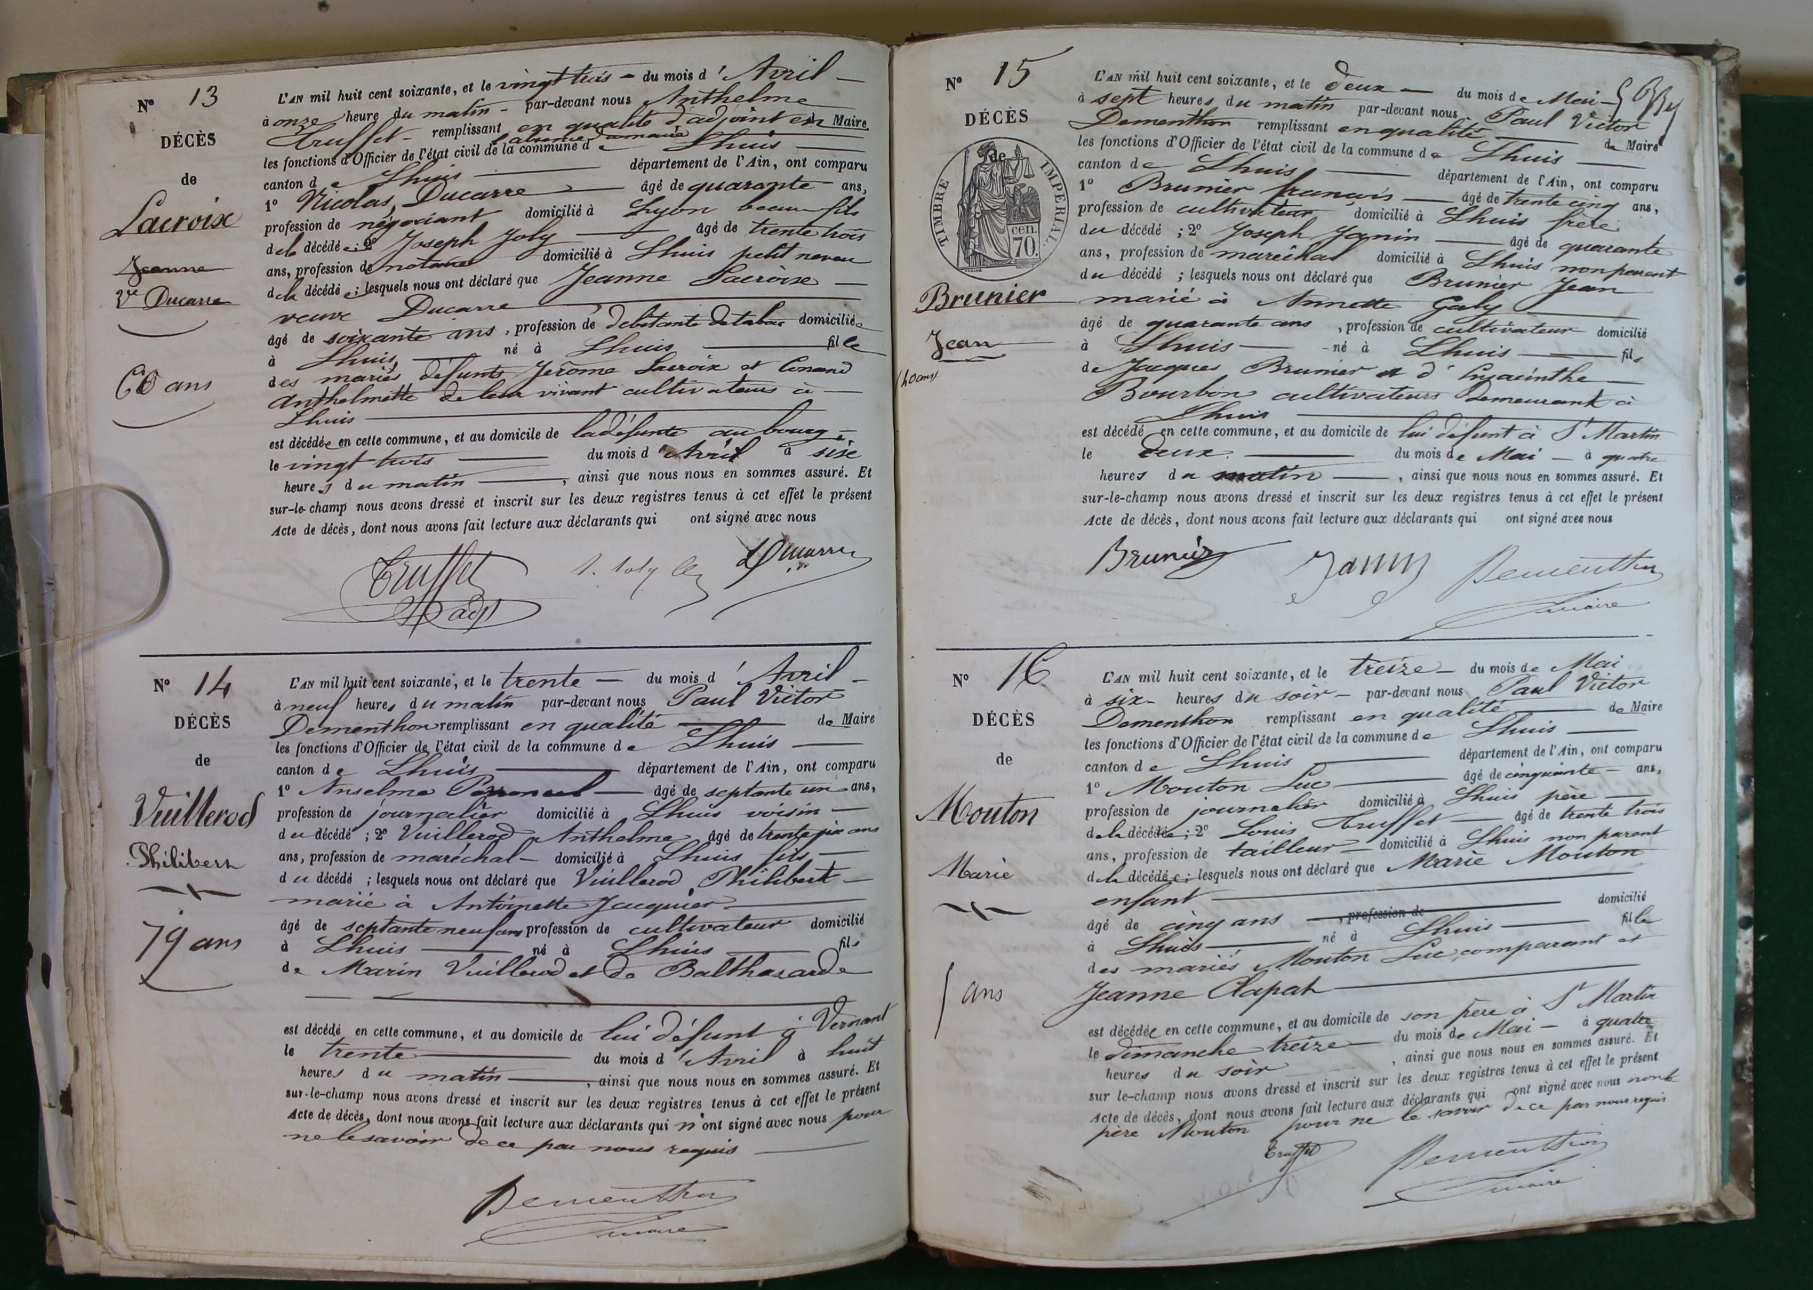 N° 13
DÉCÈS
de
Lacroix
Jeanne
Ve Ducarre
60 ans
L'AN mil huit cent soixante, et le vingt trois du mois d'Avril
à onze heure du matin par-devant nous Anthelme
Truffet remplissant en qualité d'adjoint en Maire
les fonctions d'Officier de l'état civil de la commune de Lhuis
canton de Lhuis département de l'Ain, ont comparu
1° Nicolas Ducarre âgé de quarante ans,
profession de négociant domicilié à Lyon beau fils
de la décédée; 2° Joseph Joly âgé de trente trois
ans, profession de notaire domicilié à Lhuis petit neveu
de la décédée; lesquels nous ont déclaré que Jeanne Lacroix
veuve Ducarre
âgé de soixante ans, profession de debitante de tabac domiciliée
à Lhuis né à Lhuis fille
des mariés défunts Jerome Lacroix et Conand
Anthelmette de leur vivant cultivateurs à
Lhuis
est décédée en cette commune, et au domicile de la défunte au bourg
le vingt trois du mois d'Avril à sixe
heures du matin, ainsi que nous nous en sommes assuré. Et
sur-le-champ nous avons dressé et inscrit sur les deux registres tenus à cet effet le présent
Acte de décès, dont nous avons fait lecture aux déclarants qui ont signé avec nous
Truffet adjt J. Joly Ducarre
N° 14
DÉCÈS
de
Vuillerod
Philibert
79 ans
L'AN mil huit cent soixante, et le trente du mois d'Avril
à neuf heures du matin par-devant nous Paul Victor
Dementhon remplissant en qualité de Maire
les fonctions d'Officier de l'état civil de la commune de Lhuis
canton de Lhuis département de l'Ain, ont comparu
1° Anselme âgé de septante un ans,
profession de journalier domicilié à Lhuis voisin
du décédé; 2° Vuillerod Anthelme âgé de trente six ans
ans, profession de maréchal domicilié à Lhuis fils
du décédé; lesquels nous ont déclaré que Vuillerod Philibert
marié à Antoinette Jacquier
âgé de septante neuf ans profession de cultivateur domicilié
à Lhuis né à Lhuis fils
de Marin Vuillerod et de Balthazarde
est décédé en cette commune, et au domicile de lui défunt à Vernant
le trente du mois d'Avril à huit
heures du matin, ainsi que nous nous en sommes assuré. Et
sur-le-champ nous avons dressé et inscrit sur les deux registres tenus à cet effet le présent
Acte de décès, dont nous avons fait lecture aux déclarants qui n'ont signé avec nous pour
ne le savoir de ce par nous requis
Dementhon
maire
N° 15
DÉCÈS
de
TIMBRE IMPERIAL.
70 cen.
Brunier
Jean
(40 ans)
L'AN mil huit cent soixante, et le deux du mois de Mai
à sept heures du matin par-devant nous Paul Victor
Dementhon remplissant en qualité de Maire
les fonctions d'Officier de l'état civil de la commune de Lhuis
canton de Lhuis département de l'Ain, ont comparu
1° Brunier françois âgé de trente cinq ans,
profession de cultivateur domicilié à Lhuis frère
du décédé; 2° Joseph Janin âgé de quarante
ans, profession de maréchal domicilié à Lhuis non parent
du décédé; lesquels nous ont déclaré que Brunier Jean
marié à Annette Galy
âgé de quarante ans, profession de cultivateur domicilié
à Lhuis né à Lhuis fils
de Jacques Brunier et d'hyacinthe
Bourbon cultivateurs demeurant à
Lhuis
est décédé en cette commune, et au domicile de lui défunt à St Martin
le deux du mois de Mai à quatre
heures du matin, ainsi que nous nous en sommes assuré. Et
sur-le-champ nous avons dressé et inscrit sur les deux registres tenus à cet effet le présent
Acte de décès, dont nous avons fait lecture aux déclarants qui ont signé avec nous
Brunier Janin Dementhon
maire
N° 16
DÉCÈS
de
Mouton
Marie
5 ans
L'AN mil huit cent soixante, et le treize du mois de Mai
à six heures du soir par-devant nous Paul Victor
Dementhon remplissant en qualité de Maire
les fonctions d'Officier de l'état civil de la commune de Lhuis
canton de Lhuis département de l'Ain, ont comparu
1° Mouton Luc âgé de cinquante ans,
profession de journalier domicilié à Lhuis père
de la décédée; 2° Louis Truffet âgé de trente trois
ans, profession de tailleur domicilié à Lhuis non parent
de la décédée; lesquels nous ont déclaré que Marie Mouton
enfant
âgé de cinq ans, profession de domicilié
à Lhuis né à Lhuis fille
des mariés Mouton Luc, comparant et
Jeanne Clapat
est décédée en cette commune, et au domicile de son père à St Martin
le dimanche treize du mois de Mai à quatre
heures du soir, ainsi que nous nous en sommes assuré. Et
sur le-champ nous avons dressé et inscrit sur les deux registres tenus à cet effet le présent
Acte de décès, dont nous avons fait lecture aux déclarants qui ont signé avec nous non le
père Mouton pour ne le savoir de ce par nous requis
Truffet Dementhon
maire